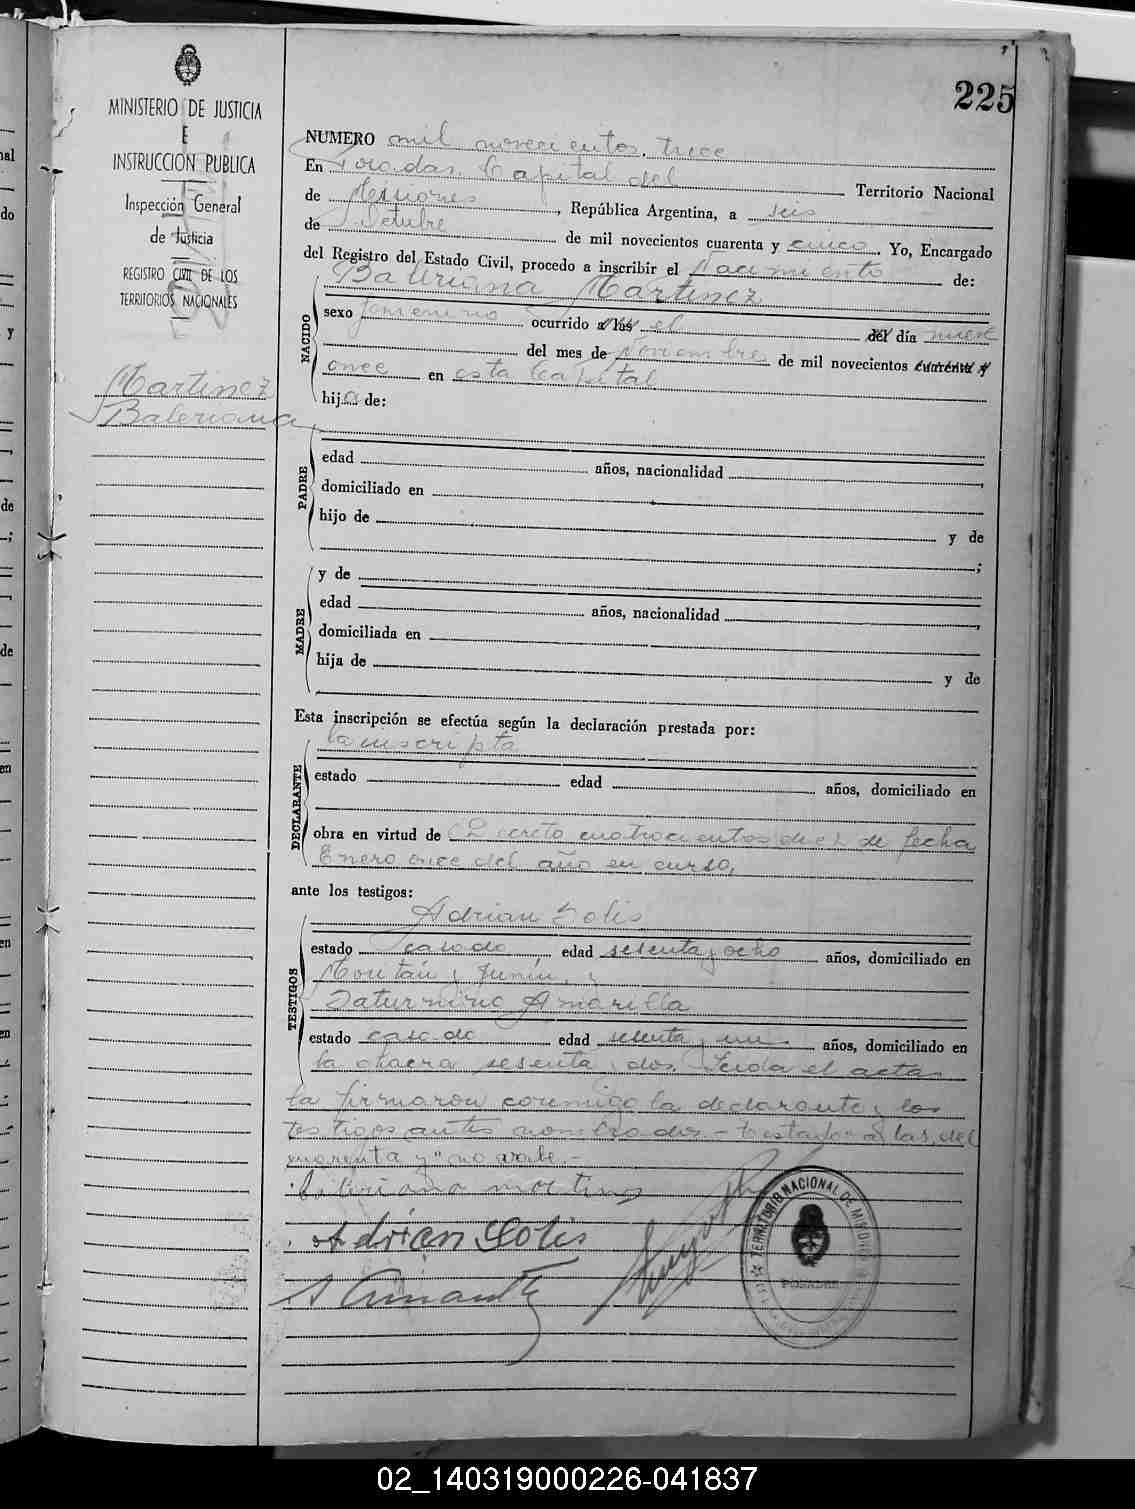 225
MINISTERIO DE JUSTICIA
E
INSTRUCCIÓN PUBLICA
Inspección General
de Justicia
REGISTRO CIVIL DE LOS
TERRITORIOS NACIONALES
Martinez
Baleriana
NUMERO mil novecientos trece
En Posadas Capital del Territorio Nacional
de Misiones, República Argentina, a seis
de Octubre de mil novecientos cuarenta y cinco. Yo, Encargado
del Registro del Estado Civil, procedo a inscribir el Nacimiento de:
Baleriana Martinez
NACIDO
sexo femenino ocurrido a las el del día nueve
del mes de Noviembre de mil novecientos cuarenta y
once en esta Capital
hija de:
PADRE
edad años, nacionalidad
domiciliado en
hijo de y de
;
MADRE
y de
edad años, nacionalidad
domiciliada en
hija de y de
Esta inscripción se efectúa según la declaración prestada por:
la inscripta
DECLARANTE
estado edad años, domiciliado en
obra en virtud de Decreto cuatrocientos diez de fecha
Enero once del año en curso,
ante los testigos:
Adrian Solis
TESTIGOS
estado casado edad sesenta y ocho años, domiciliado en
y Junin y
Saturnino Amarilla
estado casado edad sesenta y un años, domiciliado en
la chacra sesenta y dos. Leida el acta
la firmaron conmigo la declarante y los
testigos antes nombrados.- Testado: a las, del
cuarenta y" no vale.-
Baleriana martines
Adrian Solis
TERRITORIO NACIONAL DE MISIONES
POSADAS
02_140319000226-041837